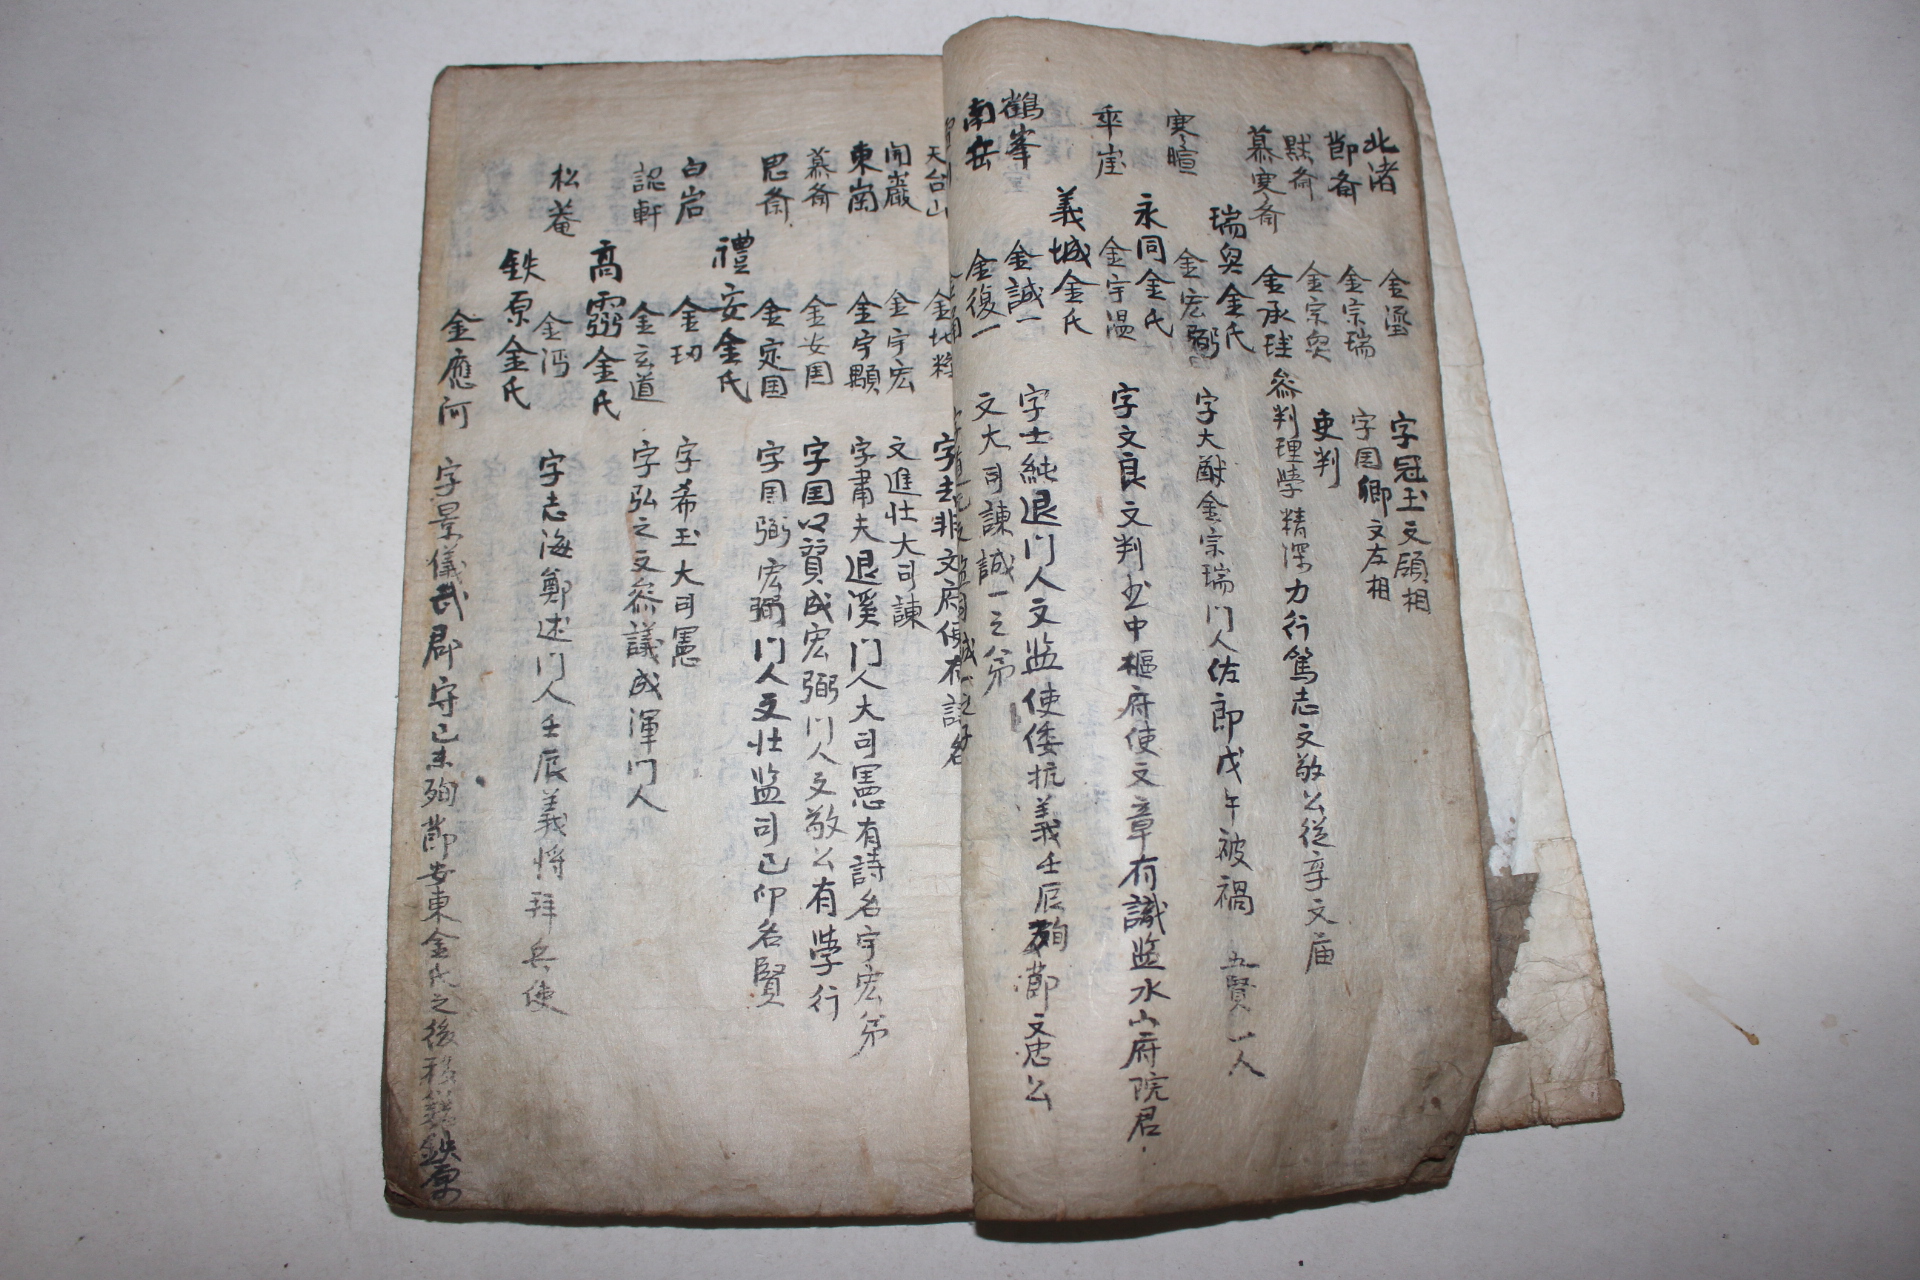 北渚 金瑬 字冠玉文領相
節斎 金宗瑞 字国卿文左相
默斎 金宗奭 吏判
慕寒斎 金承琝 參判理学精深力行篤志文敬公従享文庙
瑞兴金氏
寒暄 金宏弼 字大猷金宗瑞門人佐郎戊午被禍 五賢一人
永同金氏
乖崖 金守温 字文良文判书中樞府使文章有識监水山府院君
義城金氏
鶴峯 金誠一 字士純退門人文监使倭抗義壬辰殉節文忠公
南岳 金復一 文大司諫誠一之弟
天台山 字去非文府使有詩名
開巌 金宇宏 文進壮大司諫
東崗 金宇顒 字肅夫退溪門人大司憲有詩名宇宏弟
慕斎 金安国 字国卿宏弼門人文敬公有学行
思斎 金定国 字国弼宏弼門人文壮监司己卯名賢
禮安金氏
白岩 金玏 字希玉大司憲
認軒 金玄道 字弘之文參議成渾門人
高靈金氏
松菴 金沔 字志海鄭逑門人壬辰義将拜兵使
鉄原金氏
金應河 字景儀武郡守己未殉節安東金氏之後移籍鉄原